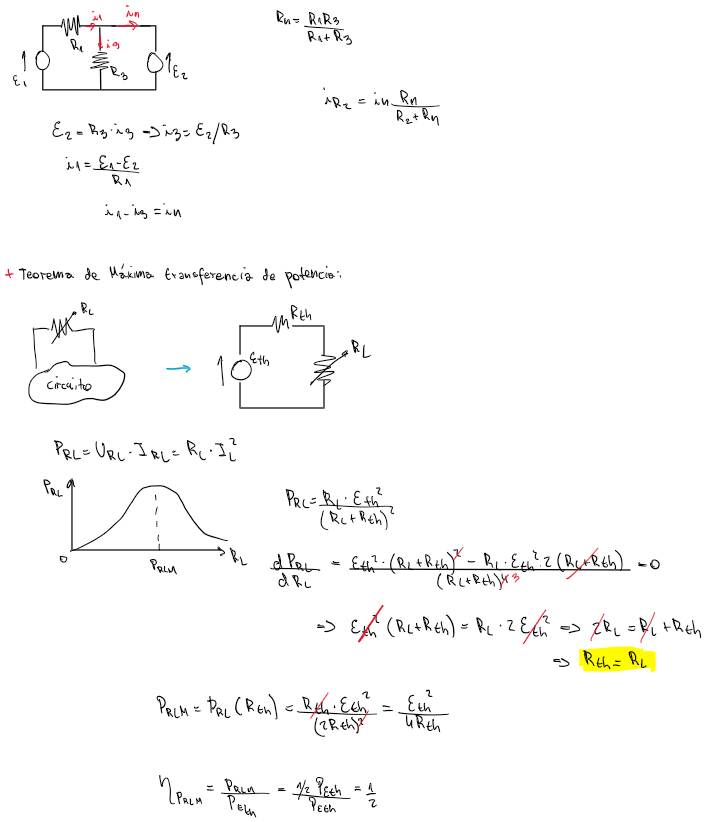 i₁ iₙ
R₁ i₃
R₃
ε₁ ε₂
Rₙ = R₁R₃ / (R₁+R₃)
i_R₂ = iₙ Rₙ / (R₂+Rₙ)
ε₂ = R₃·i₃ → i₃ = ε₂/R₃
i₁ = (ε₁-ε₂) / R₁
i₁ - i₃ = iₙ
+ Teorema de Máxima transferencia de potencia:
R_L
circuito
→
R_th
ε_th
R_L
P_RL = U_RL · I_RL = R_L · I_L²
P_RL
0 P_RLM R_L
P_RL = R_L · ε_th² / (R_L+R_th)²
dP_RL / dR_L = (ε_th² · (R_L+R_th)² - R_L · ε_th² · 2 (R_L+R_th)) / (R_L+R_th)⁴ ³ = 0
⇒ ε_th² (R_L+R_th) = R_L · 2 ε_th² ⇒ 2R_L = R_L + R_th
⇒ R_th = R_L
P_RLM = P_RL (R_th) = R_th · ε_th² / (2R_th)² = ε_th² / 4R_th
η_PRLM = P_RLM / P_Eth = 1/2 P_Eth / P_Eth = 1/2